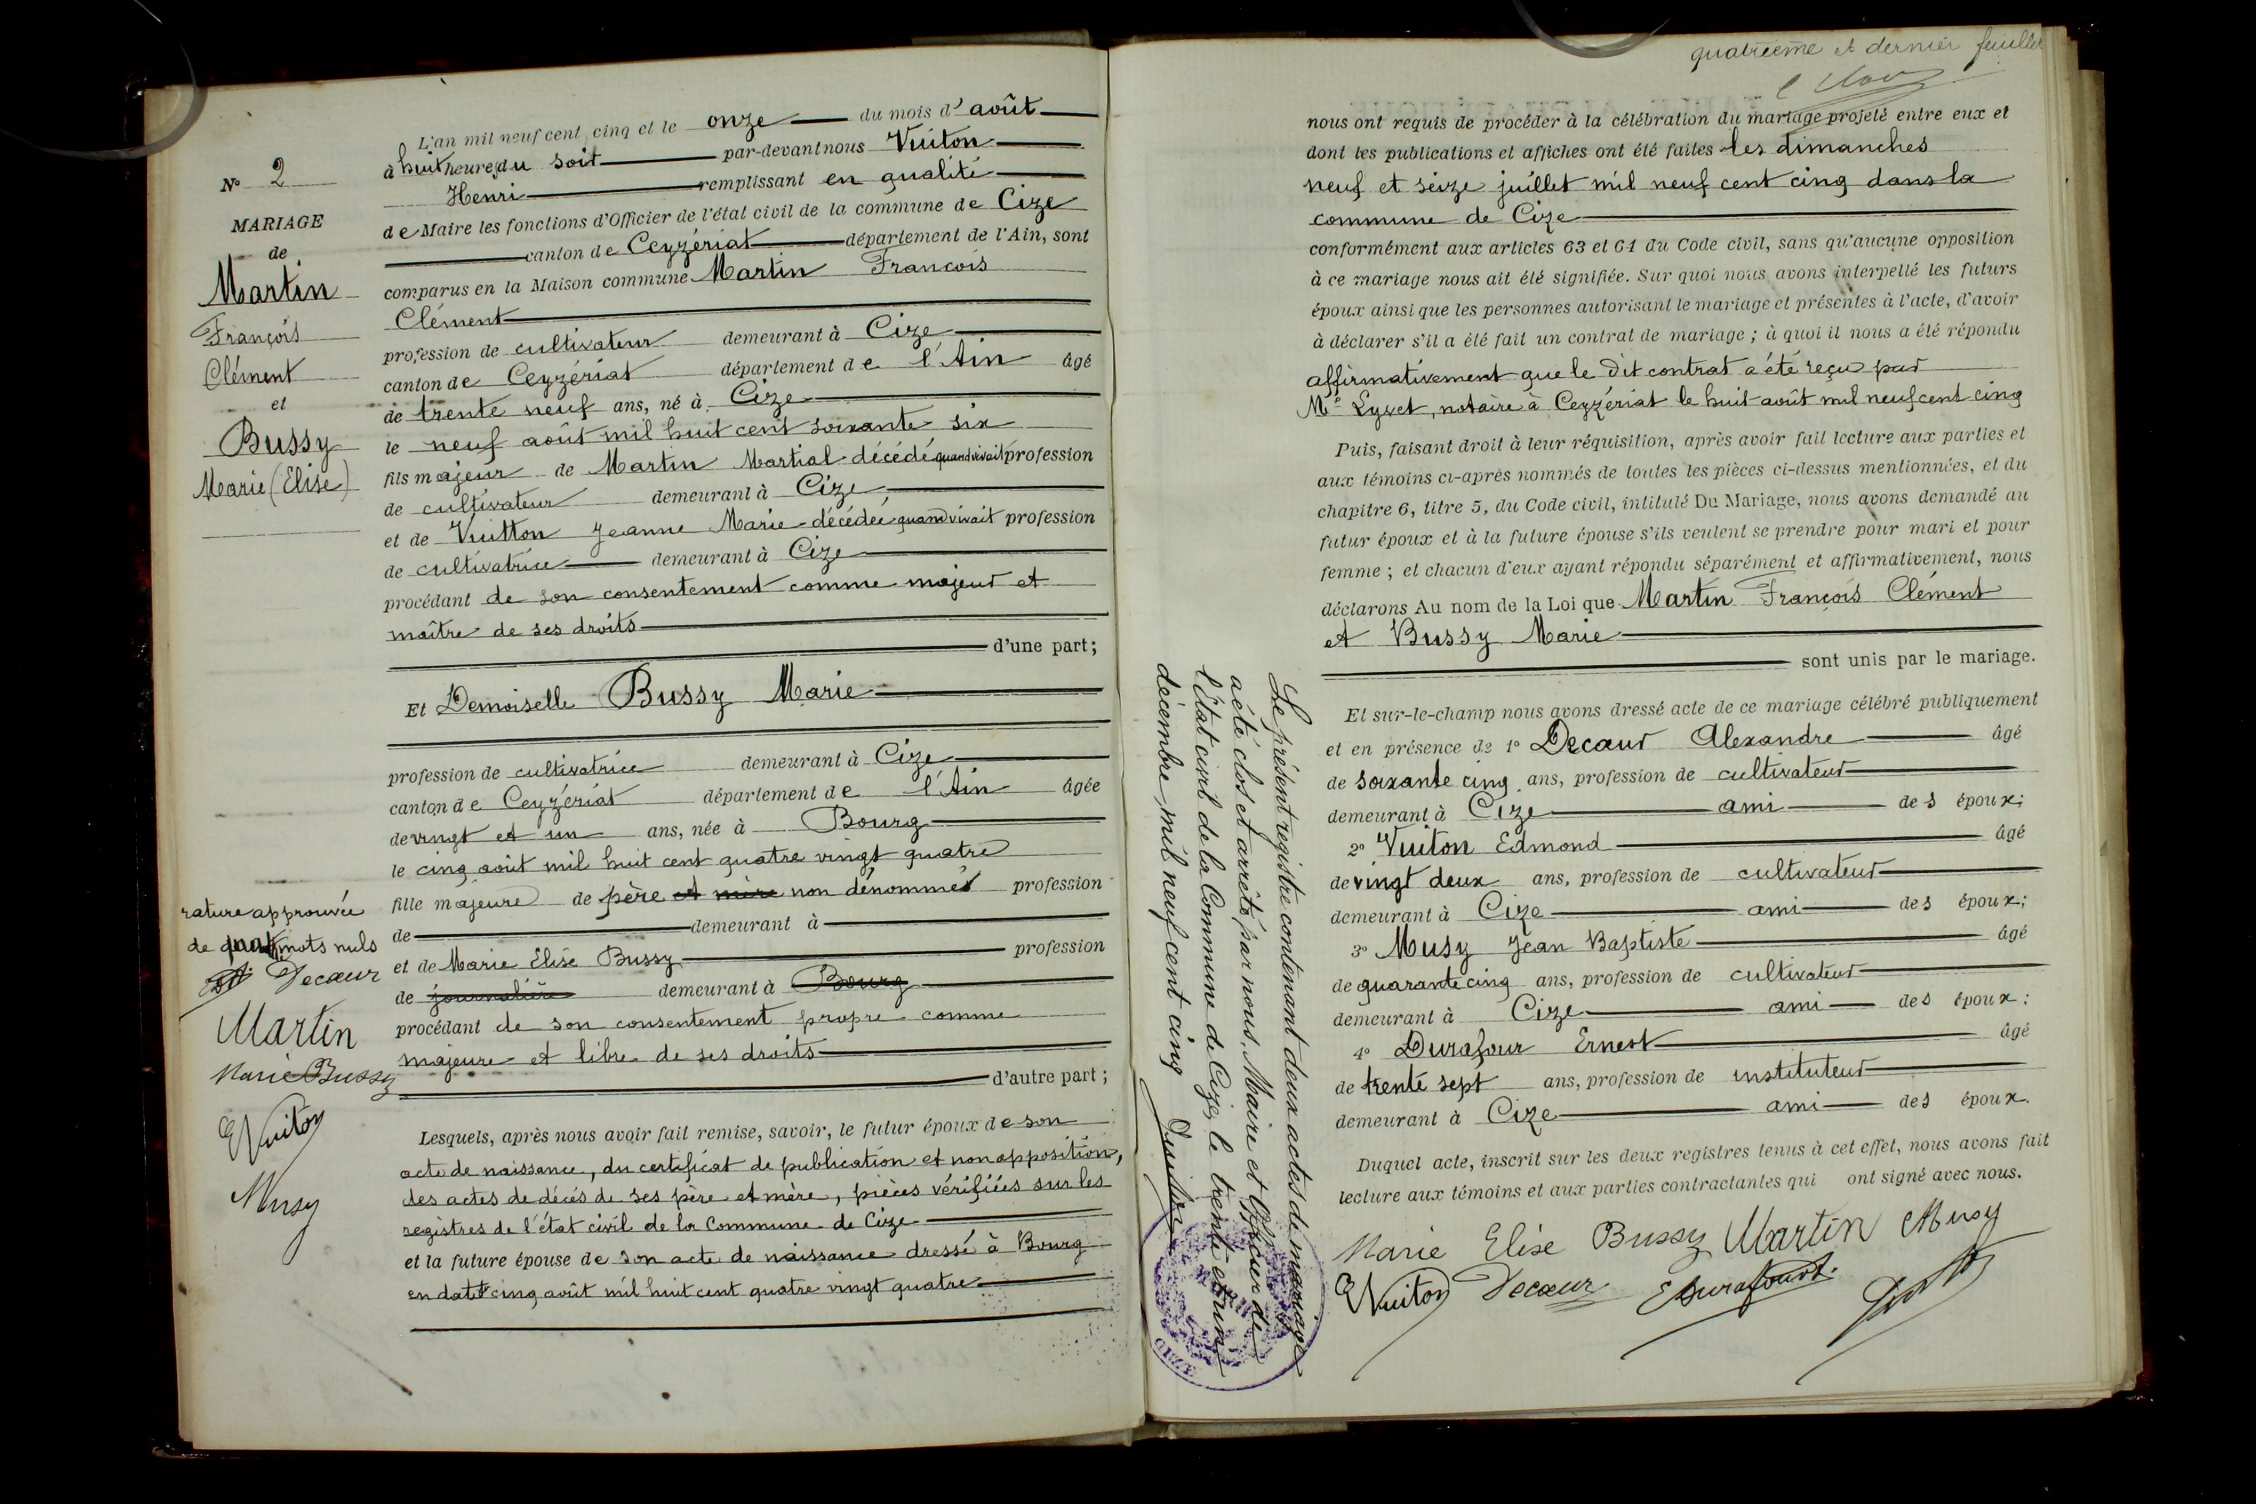 N° 2
MARIAGE
de
Martin
François
Clément
et
Bussy
Marie (Elise)
rature approuvée
de quatre mots nuls
Decœur
Martin
Marie Bussy
E Vuiton
Musy
L'an mil neuf cent cinq et le onze du mois d'août
à huit heures du soir par-devant nous Vuiton
Henri remplissant en qualité
de Maire les fonctions d'Officier de l'état civil de la commune de Cize
canton de Ceyzériat département de l'Ain, sont
comparus en la Maison commune Martin François
Clément
profession de cultivateur demeurant à Cize
canton de Ceyzériat département de l'Ain âgé
de trente neuf ans, né à Cize
le neuf août mil huit cent soixante six
fils majeur de Martin Martial décédé quand vivait profession
de cultivateur demeurant à Cize
et de Vuitton Jeanne Marie décédée quand vivait profession
de cultivatrice demeurant à Cize
procédant de son consentement comme majeur et
maître de ses droits
d'une part;
Et Demoiselle Bussy Marie
profession de cultivatrice demeurant à Cize
canton de Ceyzériat département de l'Ain âgée
de vingt et un ans, née à Bourg
le cinq août mil huit cent quatre vingt quatre
fille majeure de père et mère non dénommés profession
de demeurant à
et de Marie Elise Bussy profession
de journalière demeurant à Bourg
procédant de son consentement propre comme
majeure et libre de ses droits
d'autre part;
Lesquels, après nous avoir fait remise, savoir, le futur époux de son
acte de naissance, du certificat de publication et non opposition,
des actes de décés de ses père et mère, pièces vérifiées sur les
registres de l'état civil de la Commune de Cize
et la future épouse de son acte de naissance dressé à Bourg
en date cinq août mil huit cent quatre vingt quatre
quatrième et dernier feuillet
nous ont requis de procéder à la célébration du mariage projeté entre eux et
dont les publications et affiches ont été faites les dimanches
neuf et seize juillet mil neuf cent cinq dans la
commune de Cize
conformément aux articles 63 et 64 du Code civil, sans qu'aucune opposition
à ce mariage nous ait été signifiée. Sur quoi nous avons interpellé les futurs
époux ainsi que les personnes autorisant le mariage et présentes à l'acte, d'avoir
à déclarer s'il a été fait un contrat de mariage; à quoi il nous a été répondu
affirmativement que le dit contrat a été reçu par
Me Lyvet, notaire à Ceyzériat le huit août mil neuf cent cinq
Puis, faisant droit à leur réquisition, après avoir fait lecture aux parties et
aux témoins ci-après nommés de toutes les pièces ci-dessus mentionnées, et du
chapitre 6, titre 5, du Code civil, intitulé Du Mariage, nous avons demandé au
futur époux et à la future épouse s'ils veulent se prendre pour mari et pour
femme; et chacun d'eux ayant répondu séparément et affirmativement, nous
déclarons Au nom de la Loi que Martin François Clément
et Bussy Marie
sont unis par le mariage.
Et sur-le-champ nous avons dressé acte de ce mariage célébré publiquement
et en présence de 1° Decœur Alexandre âgé
de soixante cinq ans, profession de cultivateur
demeurant à Cize ami des époux;
2° Vuiton Edmond âgé
de vingt deux ans, profession de cultivateur
demeurant à Cize ami des époux;
3° Musy Jean Baptiste âgé
de quarante cinq ans, profession de cultivateur
demeurant à Cize ami des époux;
4° Durafour Ernest âgé
de trente sept ans, profession de instituteur
demeurant à Cize ami des époux.
Duquel acte, inscrit sur les deux registres tenus à cet effet, nous avons fait
lecture aux témoins et aux parties contractantes qui ont signé avec nous.
Marie Elise Bussy Martin Musy
E Vuiton Decœur E Durafour
Le présent registre contenant deux actes de mariage
a été clos et arrêté, par nous, Maire et Officier de
l'Etat civil de la Commune de Cize, le trente et un
décembre, mil neuf cent cinq